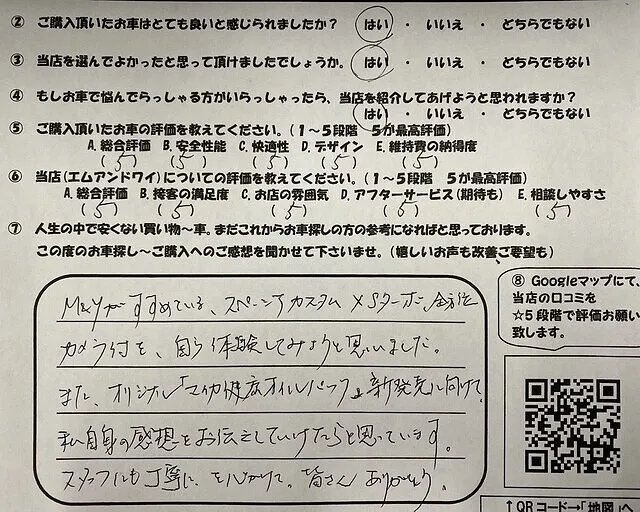 ② ご購入頂いたお車はとても良いと感じられましたか? はい ・ いいえ ・ どちらでもない
③ 当店を選んでよかったと思って頂けましたでしょうか。 はい ・ いいえ ・ どちらでもない
④ もしお車で悩んでらっしゃる方がいらっしゃったら、当店を紹介してあげようと思われますか?
はい ・ いいえ ・ どちらでもない
⑤ ご購入頂いたお車の評価を教えてください。(1～5段階 5が最高評価)
A.総合評価 B.安全性能 C.快適性 D.デザイン E.維持費の納得度
(5) (5) (5) (5) (5)
⑥ 当店(エムアンドワイ)についての評価を教えてください。(1～5段階 5が最高評価)
A.総合評価 B.接客の満足度 C.お店の雰囲気 D.アフターサービス(期待も) E.相談しやすさ
(5) (5) (5) (5) (5)
⑦ 人生の中で安くない買い物～車。まだこれからお車探しの方の参考になればと思っております。
この度のお車探し～ご購入へのご感想を聞かせて下さいませ。(嬉しいお声も改善ご要望も)
M&Yがすすめている、スペーシアカスタム XSターボ、全方位
カメラ付を、自ら体験してみようと思いました。
また、オリジナル「マイカ健康オイルパック」新発売に向けて
私自身の感想をお伝えしていけたらと思っています。
スタッフにも丁寧に、を心がけて。皆さん ありがとう。
⑧ Googleマップにて、
当店の口コミを
☆5段階で評価お願い
致します。
↑QRコード→「地図」へ